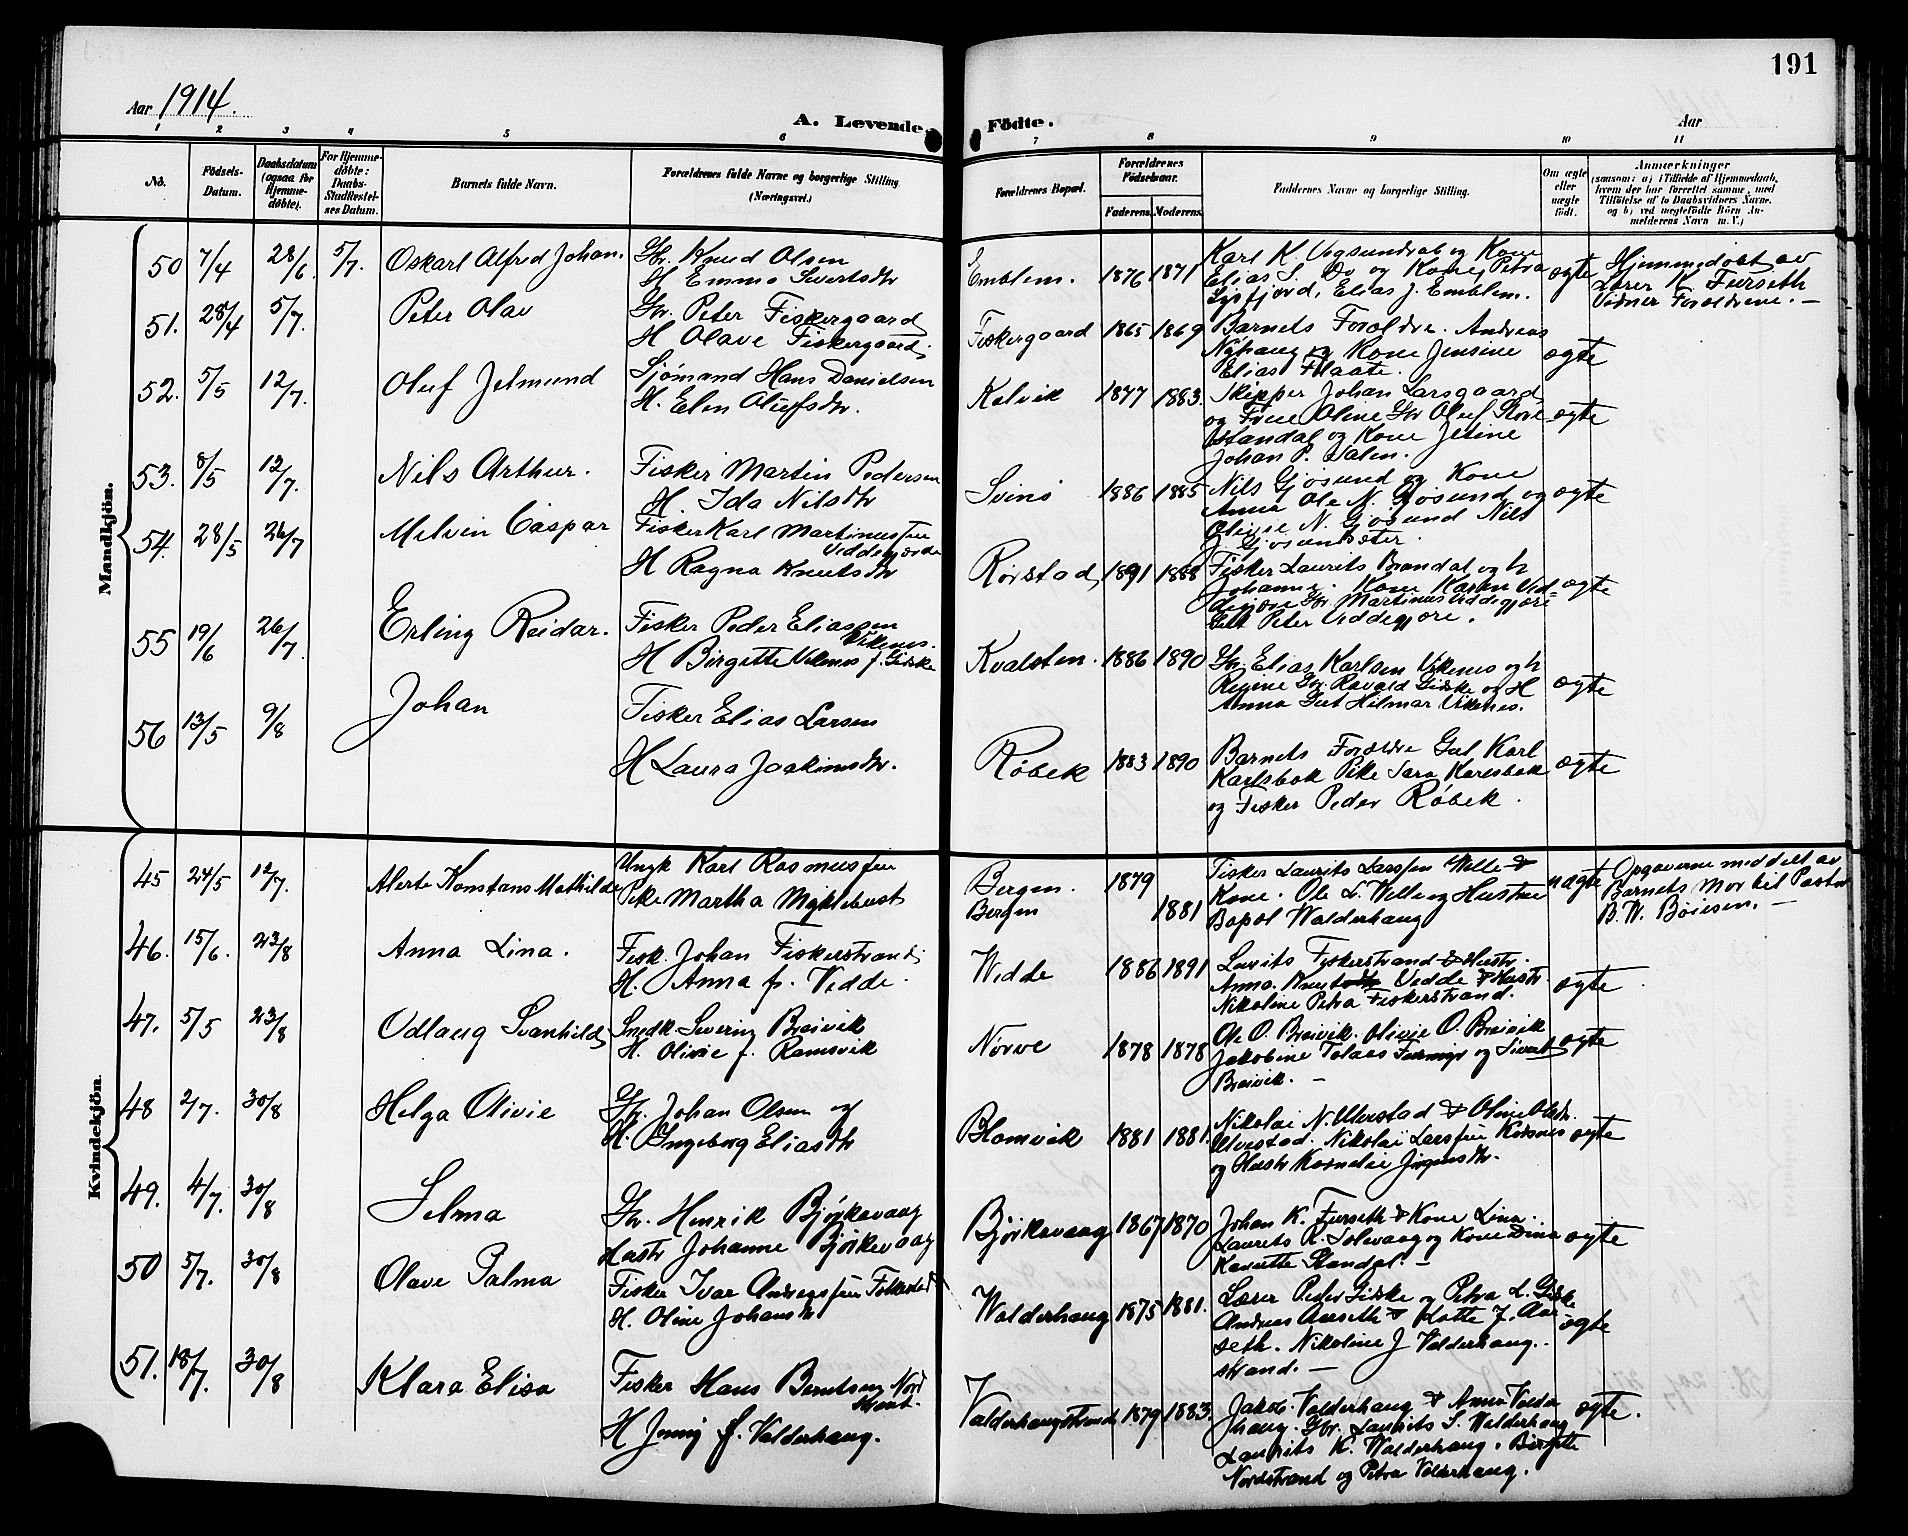 191
Aar 1914.
A. Levende Födte.
Aar
1 2 3 4 5 6 7 8 9 10 11
No.
Födsels-Datum.
Daabsdatum (ogsaa for Hjemmedöbte).
For Hjemmedöbte: Daabs-Stadfæstelses Datum.
Barnets fulde Navn.
Forældrenes fulde Navne og borgerlige Stilling (Næringsvei.)
Forældrenes Bopæl.
Forældrenes Födselsaar.
Faderens Moderens
Faddernes Navne og borgerlige Stilling.
Om ægte eller uægte födt.
Anmærkninger
(saasom: a) i Tilfælde af Hjemmedaab, hvem der har forrettet samme, med Tilföielse af to Daabsvidners Navne. og b) ved uægtefödte Börn Anmelderens Navn m. V.)
Mandkjön.
50 7/4 28/6. 5/7. Oskarl Alfred Johan. Gbr. Knud Olsen
H Emma Sivertsdtr
Emblem. 1876 1871
Karl K. Vegsundrab og Kone
Elias S. Bø og Kone, Petra
Lysfjord, Elias J. Emblem.
ægte
Hjemmedöbt av
Lærer K. Furseth
Vidner Forældrene. —
51. 28/4 5/7. Peter Olav Gbr. Peter Fiskergaard
H Olave Fiskergaard
Fiskergaard 1865 1869
Barnets Forældre. Andreas
Nyhaug og Kone Jensine
Elias Flaate.
ægte
52. 5/5 12/7. Oluf Jelmund Sjömand Hans Danielsen
H. Elen Olufsdtr.
Kalvik 1877 1883.
Skipper Johan Larsgaard
og Frue Oline Gbr Oluf
Standal og Kone Jetine
Johan P. Valen.
ægte
53. 8/5 12/7. Nils Arthur. Fisker Martin Pedersen
H. Ida Nilsdtr
Svinö 1886 1885
Nils Gjøsund og Kone
Anna Ole N. Gjøsund og
Olivie N. Gjøsund Nils
J. Gjøsundsæter.
ægte
54. 28/5 26/7 Melvin Caspar Fisker Karl Martinussen
Veddegjerde
H Ragna Knutsdtr
Rørstad 1891 1888
Fisker Laurits Brandal og h
Johanne. Kone Karen Ved-
degjøre Gbr. Martinus Veddegjøre
Gut Peter Veddegjøre.
ægte
55 19/6 26/7. Erling Reidar. Fisker Peder Eliassen
Vikenes.
H Birgitte Vikenes f. Giske
Kvalsten. 1886 1890
Gbr. Elias Karlsen Vikenes og h
Regine Gbr. Ravald Giske og H
Anna Gut Hilmar Vikenes.
ægte
56 13/5 9/8 Johan Fisker Elias Larsen
H Laura Joakimsdtr.
Røbek 1883 1890
Barnets Forældre Gut Karl
Karlsbak Pike Sara Karlsbak
og Fisker Peder Røbek.
ægte
Kvindekjön.
45 24/5 12/7. Alerte Konstans Mathilde Ungk Karl Rasmussen
Pike Martha Myklebust
Bergen. 1879
Bergen 1881
Fisker Laurits Larssen Welle &
Kone. Ole L. Welle og Hustru
Bopæl Walderhaug
uægte
Opgaverne meddelt av
Barnets Mor til Pastor
B. W. Böiesen. —
46. 15/6. 23/8 Anna Lina. Fisk. Johan Fiskerstrand
H. Anna f. Vedde.
Wedde 1886 1891
Laurits Fiskerstrand & Hustr.
Anna. Knut Vedde & Hustr
Nikoline Petra Fiskerstrand.
ægte
47. 5/5 23/8 Odlaug Svanhild Snedk Severin Breivik
H. Olivie f. Ramsvik
Nörve 1878 1878
Ole O. Breivik. Olivie O. Breivik
Jakobine Tolaas og Sivert
Breivik. —
ægte
48 2/7. 30/8 Helga Olivie Gbr. Johan Olsen og
H. Ingeborg Eliasdtr
Blomvik 1881 1881.
Nikolai N. Ulvestad & Oline Olsdtr.
Ulvestad. Nikolai Larssen
og Hustr Kornelie Jörgensdtr.
ægte
49. 4/7. 30/8 Selma Gbr. Henrik Björkavaag
Hustr Johanne Björkevaag
Björkavaag 1867 1870
Johan K. Furseth & Kone Lina.
Laurits R. Solevaag og Kone Dina
Standal. —
ægte
50 5/7. 30/8 Olave Palma Fisker Ivar Andreassen Folkestad
H. Oline Johansdtr
Walderhaug 1875 1881.
Lærer Peder Giske og Petra L. Giske
Andreas Aarseth & Lotte J. Aar-
seth. Nikoline J Valderhaug-
strand. —
ægte
51. 18/7. 30/8 Klara Elisa Fisker Hans Berntsen Nord
strand.
H Jenny f. Valderhaug.
Valderhaugstrand 1879 1883.
Jakob Valderhaug & Anna Valder
haug. Gbr. Laurits S. Walderhaug
Laurits K. Walderhaug. Birgitte
Nordstrand og Petra Valderhaug.
ægte.